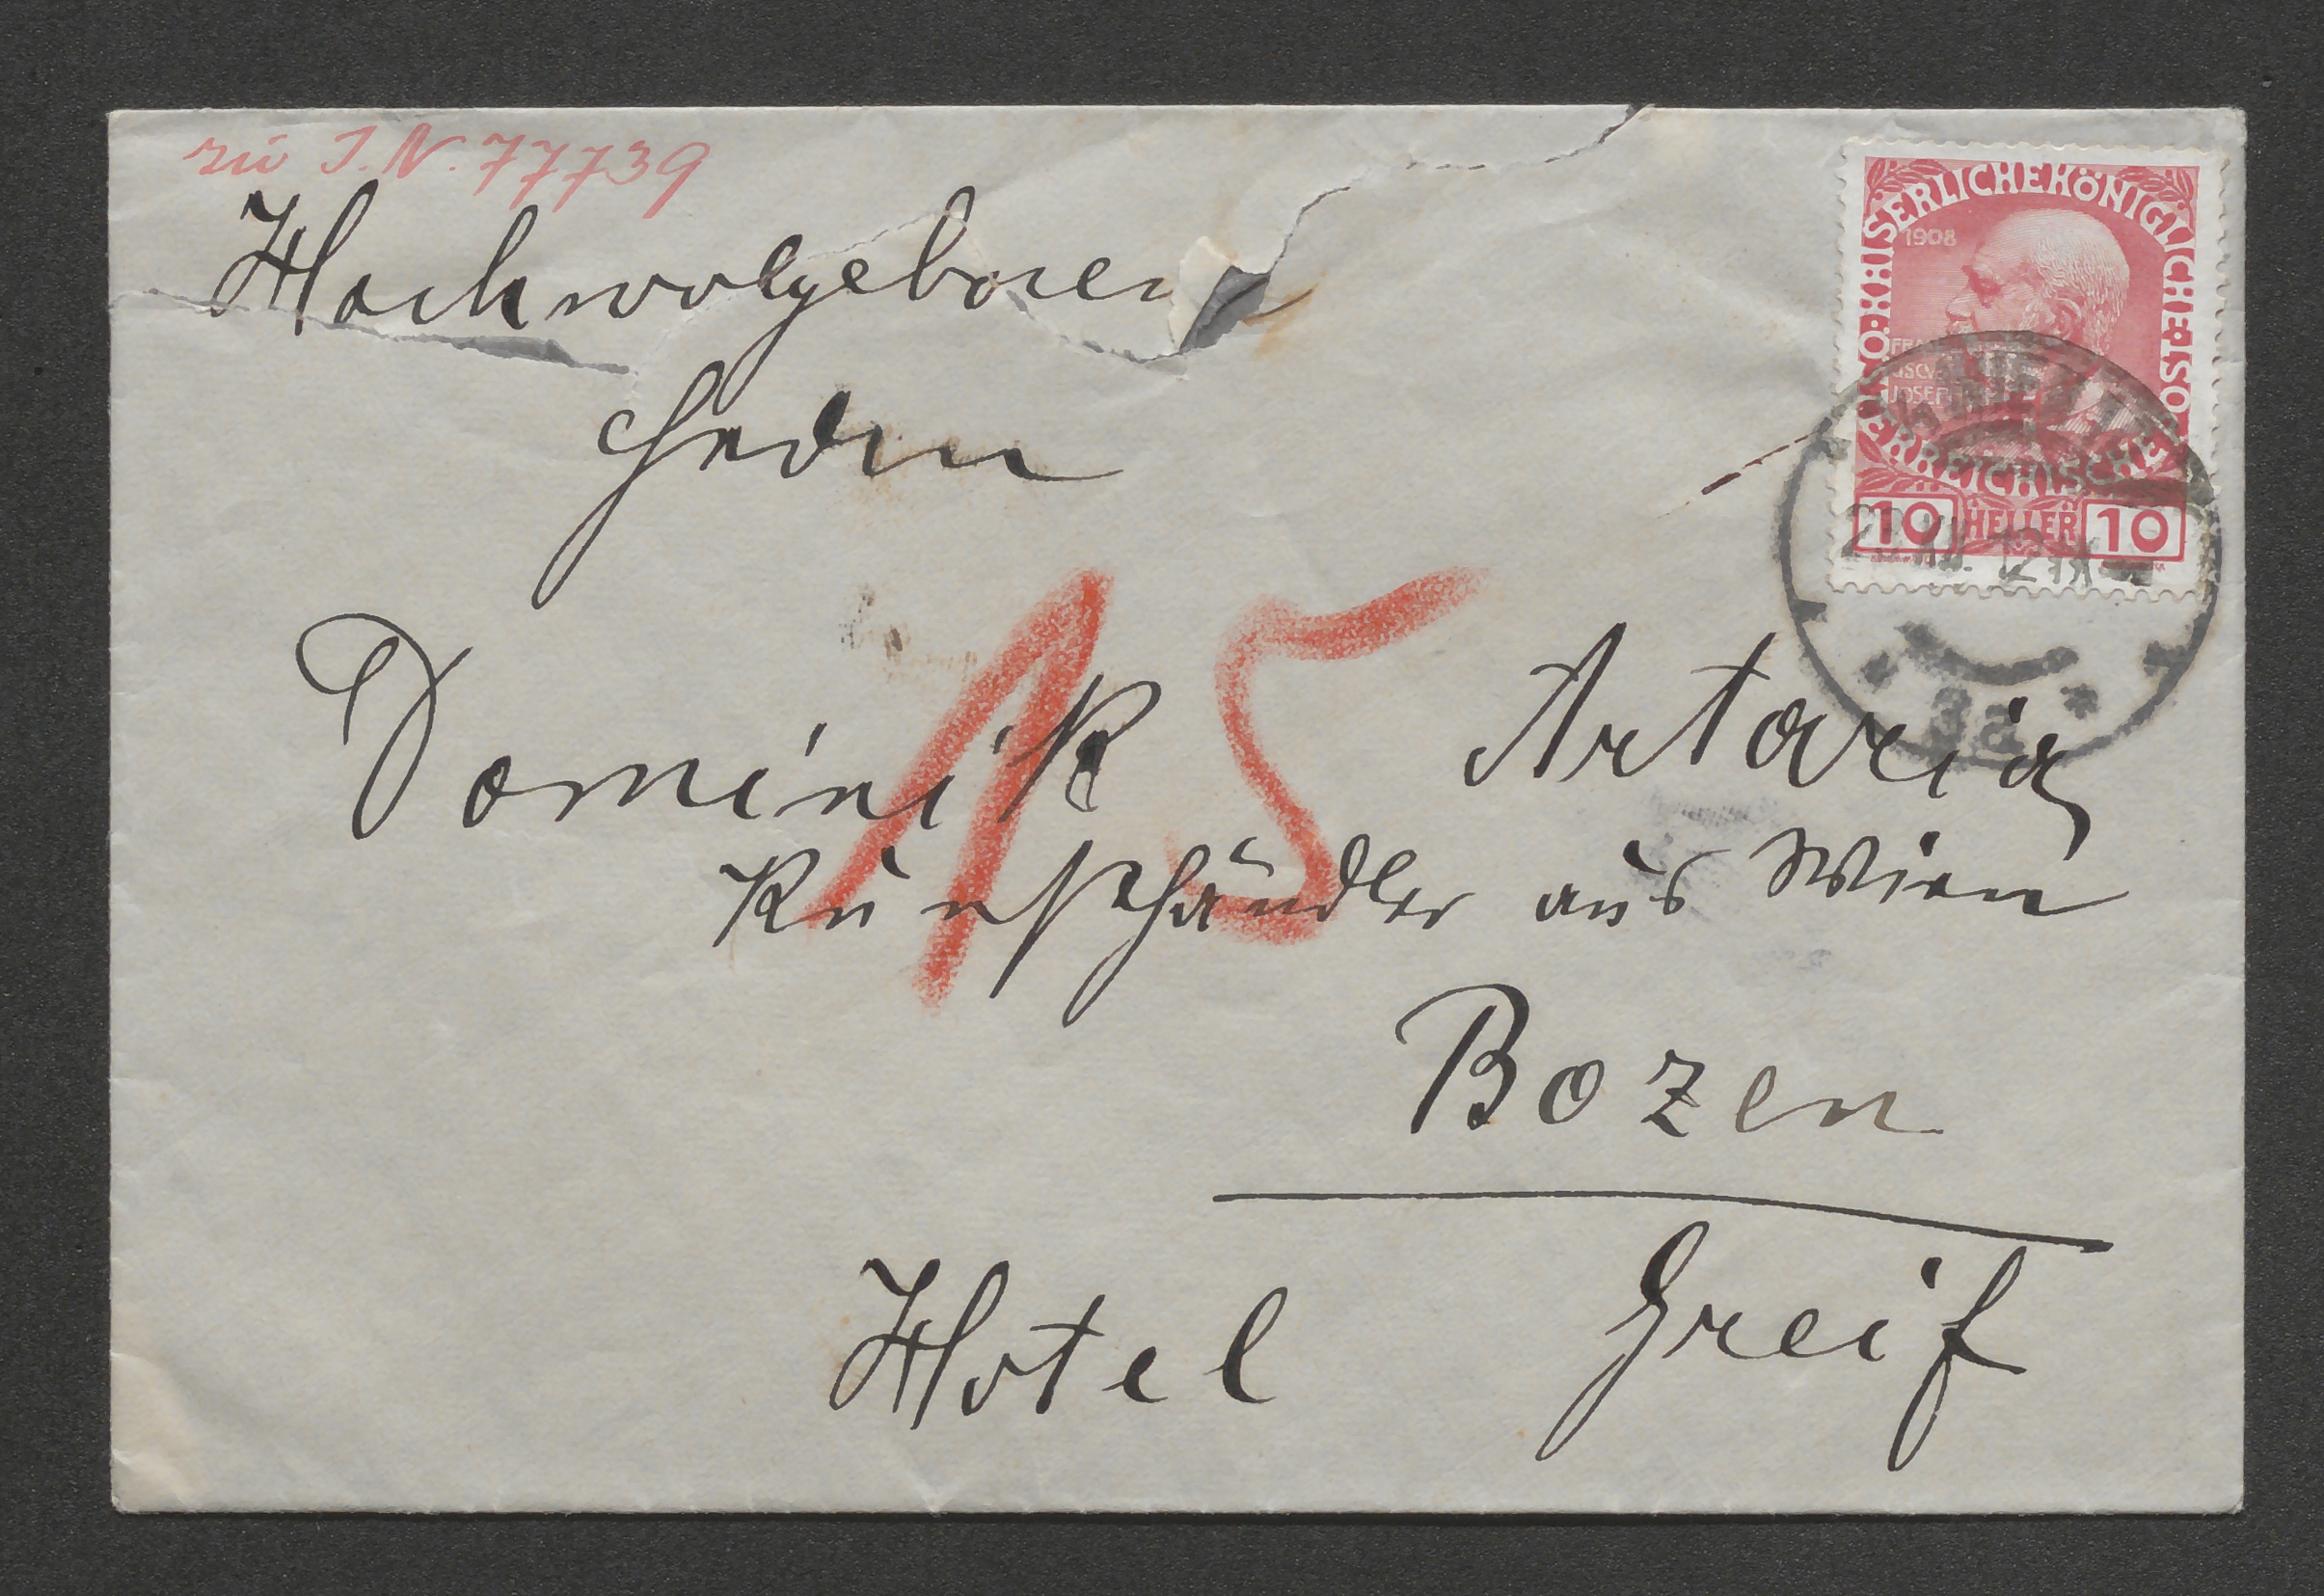 zu I.N. 77739
Hochwolgeboren
Herrn
15
Dominik Artaria
Kunsthändler aus Wien
Bozen
Hotel Greif
KAISERLICHE KÖNIGLICHE
ÖSTERREICHISCHE
1908
FRANZ
JOSEF
10 HELLER 10
XII. 12